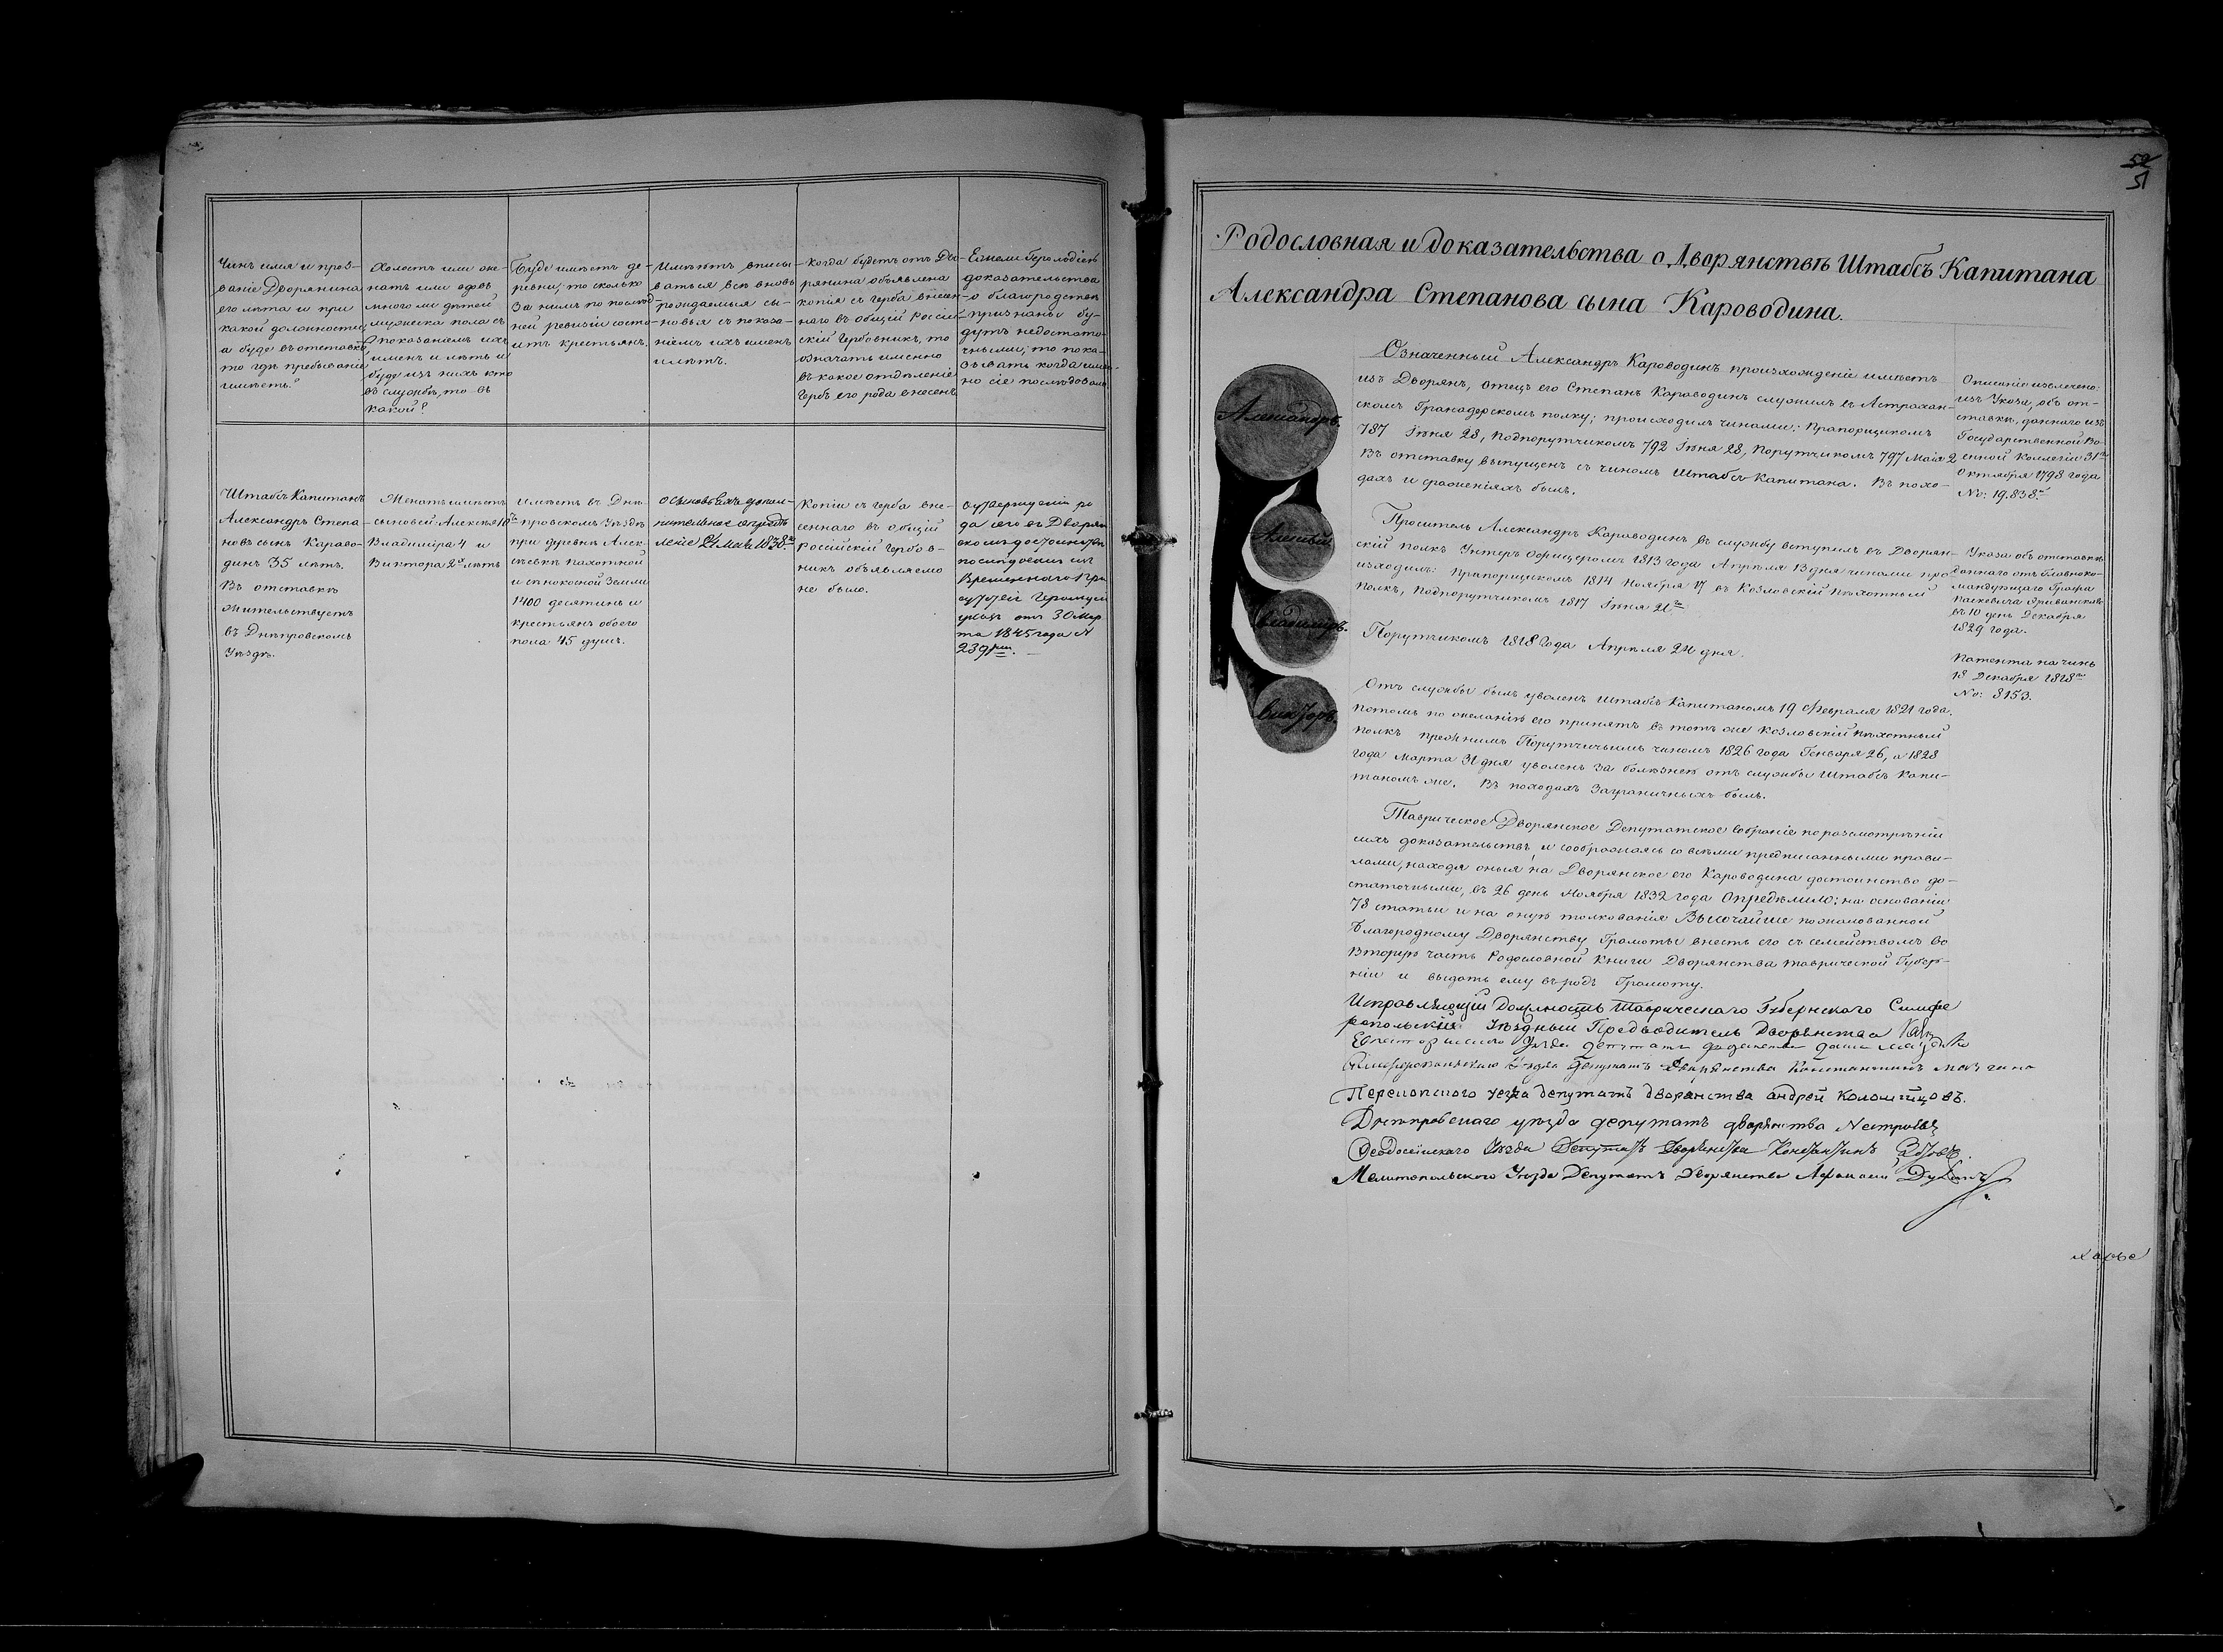 Чинъ имя и проз-
ваніе Дворянина
его лѣта и при
какой должности,
а буде въ отставкѣ
то гдѣ пребываніе
имѣетъ?
Холостъ или же-
натъ или вдовъ
много ли дѣтей
мужеска пола съ
показаніемъ ихъ
именъ и лѣтъ и
буде изъ нихъ кто
въ службѣ, то въ
какой?
Буде имѣетъ де-
ревни, то сколько
за нимъ по послѣд-
ней ревизіи состо-
итъ крестьянъ.
Имѣютъ вписы-
ваться всѣ вновь
рождаемыя сы-
новья съ показа-
ніемъ ихъ именъ
и лѣтъ.
Когда будетъ отъ Дво-
рянина объявлена
копія съ герба внесен-
наго въ общій Россій-
скій Гербовникъ, то
означать именно
въ какое отдѣленіе
Гербъ его рода внесенъ
Ежели Герольдіею
доказательства
о благородствѣ
признаны бу-
дутъ недостато-
чными, то пока-
зывать когда имен-
но сіе послѣдовало
Штабсъ Капитанъ
Александръ Степа-
новъ сынъ Карово-
динъ 35 лѣтъ.
Въ отставкѣ
жительствуетъ
въ Днѣпровскомъ
Уѣздѣ.
Женатъ имѣетъ
сыновей: Алексѣя 10ть
Владиміра 4 и
Виктора 2хъ лѣтъ
имѣетъ въ Днѣ-
провскомъ Уѣздѣ
при деревнѣ Алек-
сѣевкѣ пахотной
и сѣнокосной земли
1400 десятинъ и
крестьянъ обоего
пола 45 душъ.
о сыновьяхъ допол-
нительное опредѣ-
леніе 21 Мая 1838го
Копіи съ герба вне-
сеннаго въ общій
Россійскій Гербов-
никъ объявляемо
не было.
о утвержденіи ро
да сего въ Дворян
скомъ достоинствѣ
послѣдовалъ
Временнаго При
сутствія Герольдіи
указъ отъ 30 Мар
та 1845 года №
239
52
51
Родословная и доказательства о Дворянствѣ Штабсъ Капитана
Александра Степанова сына Кароводина.
Александръ.
Алексѣй
Владиміръ.
Викторъ.
Означенный Александръ Кароводинъ происхожденіе имѣетъ
изъ Дворянъ, отецъ его Степанъ Кароводинъ служилъ въ Астрахан-
скомъ Гранадерскомъ полку; происходилъ чинами: Прапорщикомъ
787 Іюня 28, Подпорутчикомъ 792 Іюня 28, Порутчикомъ 797 Маія 2
Въ отставку выпущенъ съ чиномъ Штабсъ-Капитана. Въ похо-
дахъ и сраженіяхъ былъ.
Описаніе извлечено:
изъ Указа, объ от-
ставкѣ, даннаго изъ
Государственной Во-
енной Коллегіи 31го
Октября 1798 года
No: 19.838.
Проситель Александръ Кароводинъ въ службу вступилъ въ Дворян-
скій полкъ Унтеръ Офицеромъ 1813 года Апрѣля 13 дня чинами про-
исходилъ: Прапорщикомъ 1814 Ноября 17 въ Козловскій Пѣхотный
полкъ, Подпорутчикомъ 1817 Іюня 21го
Порутчикомъ 1818 года Апрѣля 24 дня.
Указа объ отставкѣ
даннаго отъ Главноко-
мандующаго Графа
Паскевича Эриванскаго
въ 10 день Декабря
1829 года.
Патента на чинъ
18 Декабря 1818го
No: 8153.
Отъ службы былъ уволенъ Штабсъ Капитаномъ 19 Февраля 1821 года.
Потомъ по желанію его принятъ въ тотъ же Козловскій Пѣхотный
полкъ прежнимъ Порутчичьимъ чиномъ 1826 года Генваря 26, а 1828
года Марта 31 дня уволенъ за болѣзнею отъ службы Штабсъ Капи-
таномъ же. Въ походахъ заграничныхъ былъ.
Таврическое Дворянское Депутатское собраніе по разсмотрѣніи
сихъ доказательствъ, и сообразяясь со всѣми предписанными прави-
лами, находя оныя на Дворянское его Кароводина достоинство до-
статочными, въ 26 день Ноября 1832 года Опредѣлило; на основаніи
78 статьи и на оную толкованія Высочайше пожалованной
Благородному Дворянству Грамоты внесть его съ семействомъ во
Вторую часть Родословной Книги Дворянства Таврической Губер-
ніи и выдать ему въ родъ Грамоту.
Исправляющій Должность Таврическаго Губернскаго Симфе
ропольскій Уѣздный Предводитель Дворянства
Евпаторійскаго Уѣзда депутатъ
Симферопольскаго Уѣзда Депутатъ Дворянства Константинъ
Перекопского уезда депутатъ дворянства андрей Коломийцовъ.
Днѣпровскаго уѣзда депутатъ дворянства
Феодосійскаго Уѣзда Депутатъ Дворянства Константинъ
Мелитопольского Уѣзда Депутатъ Дворянства Афанасій